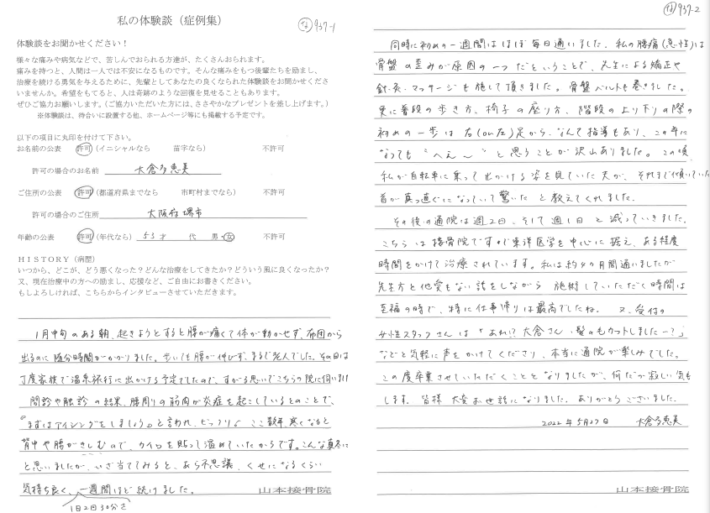 私の体験談（症例集）
937-1
体験談をお聞かせください！
様々な痛みや病気などで、苦しんでおられる方達が、たくさんおられます。
痛みを持つと、人間は一人では不安になるものです。そんな痛みをもつ後輩たちを励まし、
治療を続ける勇気を与えるために、先輩としてあなたの良くなられた体験談をお聞かせください
ませんか。希望をもてると、人は奇跡のような回復を見せることもあります。
ぜひご協力お願いします。（ご協力いただいた方には、ささやかなプレゼントを差し上げます。）
※体験談は、待合いに設置する他、ホームページ等にも掲載する予定です。
以下の項目に丸印を付けて下さい。
お名前の公表 許可（イニシャルなら 苗字なら） 不許可
許可の場合のお名前 大倉 恵美
ご住所の公表 許可（都道府県までなら 市町村までなら） 不許可
許可の場合のご住所 大阪府堺市
年齢の公表 許可（年代なら） 53才 代 男・女 不許可
HISTORY（病歴）
いつから、どこが、どう悪くなった？どんな治療をしてきた？どういう風に良くなったか？
又、現在治療中の方への励まし、応援など、ご自由にお書きください。
もしよろしければ、こちらからインタビューさせていただきます。
1月中旬のある朝、起きようとすると腰が痛くて体が動かせず、布団から
出るのに随分時間がかかりました。歩いても腰が伸びず、まるで老人でした。その日は
丁度家族で温泉旅行に出かける予定でしたので、すがる思いでこちらの院に伺います
問診や触診の結果、腰周りの筋肉が炎症を起こしているとのことで、
"まずはアイシングをしましょう。"と言われ、ビックリ。ここ数年、寒くなると
背中や腰がきしむので、カイロを貼って温めていたからです。こんな真冬に
と思いましたが、いざ当ててみると、あら不思議、くせになるくらい
気持ち良く、一週間ほど続けました。
1日2回30分
山本接骨院
937-2
同時に初めの一週間はほぼ毎日通いました。私の腰痛(急性)は
骨盤の歪みが原因の一つだということで、先生による矯正や
針、灸、マッサージを施して頂きました。骨盤ベルトも巻きました。
更に普段の歩き方、椅子の座り方、階段の上り下りの際の
初めの一歩は右(or左)足から、なんて指導もあり、この年に
なっても"へぇ〜"と思うことが沢山ありました。この頃、
私が自転車に乗って出かける姿を見ていた夫が、それまで傾いていた
首が真っ直ぐになっていて驚いたと教えてくれました。
その後の通院は週2日、そして週1日と減っていきました。
こちらは接骨院ですが東洋医学を中心に据え、ある程度
時間をかけて治療されています。私は約4ヶ月間通いましたが
先生方と他愛もない話をしながら施術していただく時間は
至福の時で、特に仕事帰りは最高でしたね。又、受付の
女性スタッフさんは"あれ!?大倉さん、髪の毛カットしました〜?"
などと気軽に声をかけてくださり、本当に通院が楽しみでした。
この度卒業させていただくこととなりましたが、何だか寂しい気も
します。皆様大変お世話になりました。ありがとうございました。
2022年5月27日 大倉恵美
山本接骨院